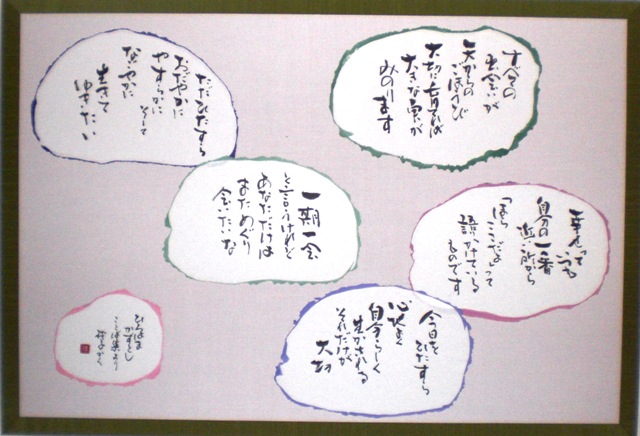 すべての
出会いが
天からの
ごほうび
大切に育てれば
大きな実が
みのります
ただひたすら
おだやかに
やすらかに
そして
なごやかに
生きて
ゆきたい
幸せって
いつも
自分の一番
近い所から
「ほら
ここだよ」って
語りかけている
ものです
一期一会
と言うけれど
あなただけは
またためぐり
会いたいな
今日を
ひたすら
心状よく
自分らしく
生かされる
それだけが
大切
ひろはま
かずとし
ことば集より